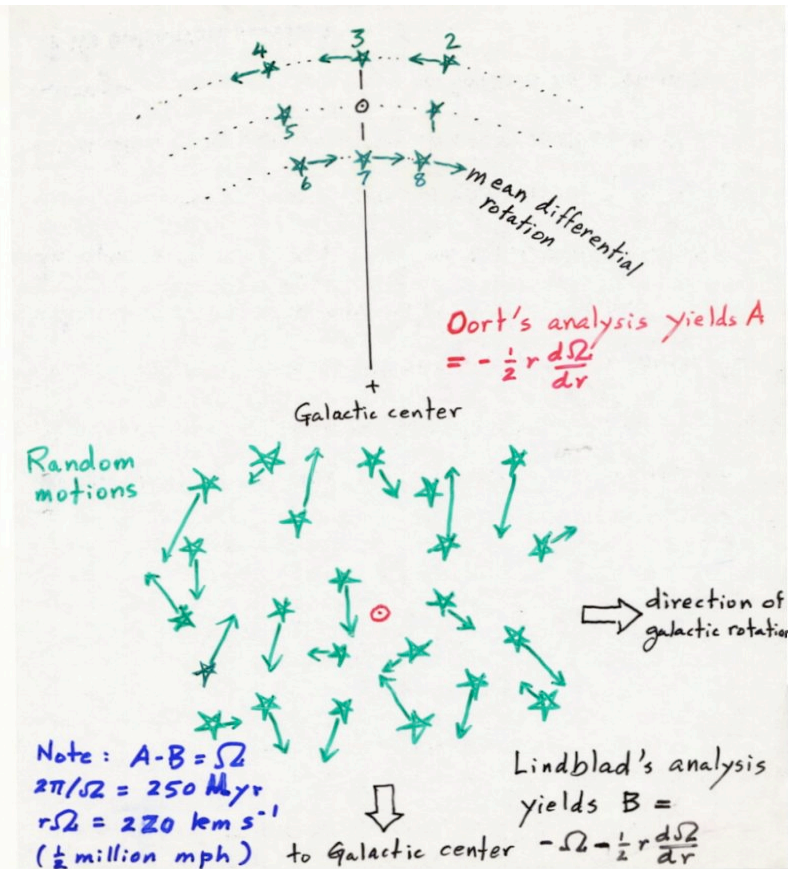 4 3 2
5 1
6 7 8
mean differential
rotation
Oort's analysis yields A
= - ½ r dΩ/dr
+
Galactic center
Random
motions
direction of
galactic rotation
Note: A-B = Ω
2π/Ω = 250 Myr
rΩ = 220 km s⁻¹
(½ million mph)
to Galactic center
Lindblad's analysis
yields B =
-Ω - ½ r dΩ/dr